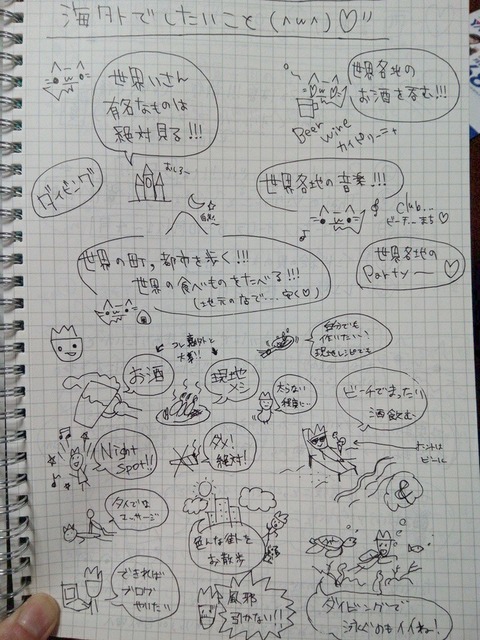 海外でしたいこと(^w^)♡
世界いさん
有名なものは
絶対見る!!!
世界各地の
お酒を呑む!!!
Beer
wine
カイピリーニャ
おしろ〜
ダイビング
自然〜
世界各地の音楽!!!
Club...
世界各地の
Party〜
世界の町,都市を歩く!!!
世界の食べものをたべる!!!
(地元のなで...安く♡)
コレ意外と
大事!!
お酒
現地
メシ
自分でも
作りたい!
現地レシピでも
太らない
程度に...
ビーチでまったり
酒飲む〜
Night
spot!!
ダメ!
絶対!
ビール
&
タイで
マッサージ
色んな街を
お散歩
できれば
ブログ
やりたい
風邪
引かない!!
ダイビングで
泳ぐのもイイねー!